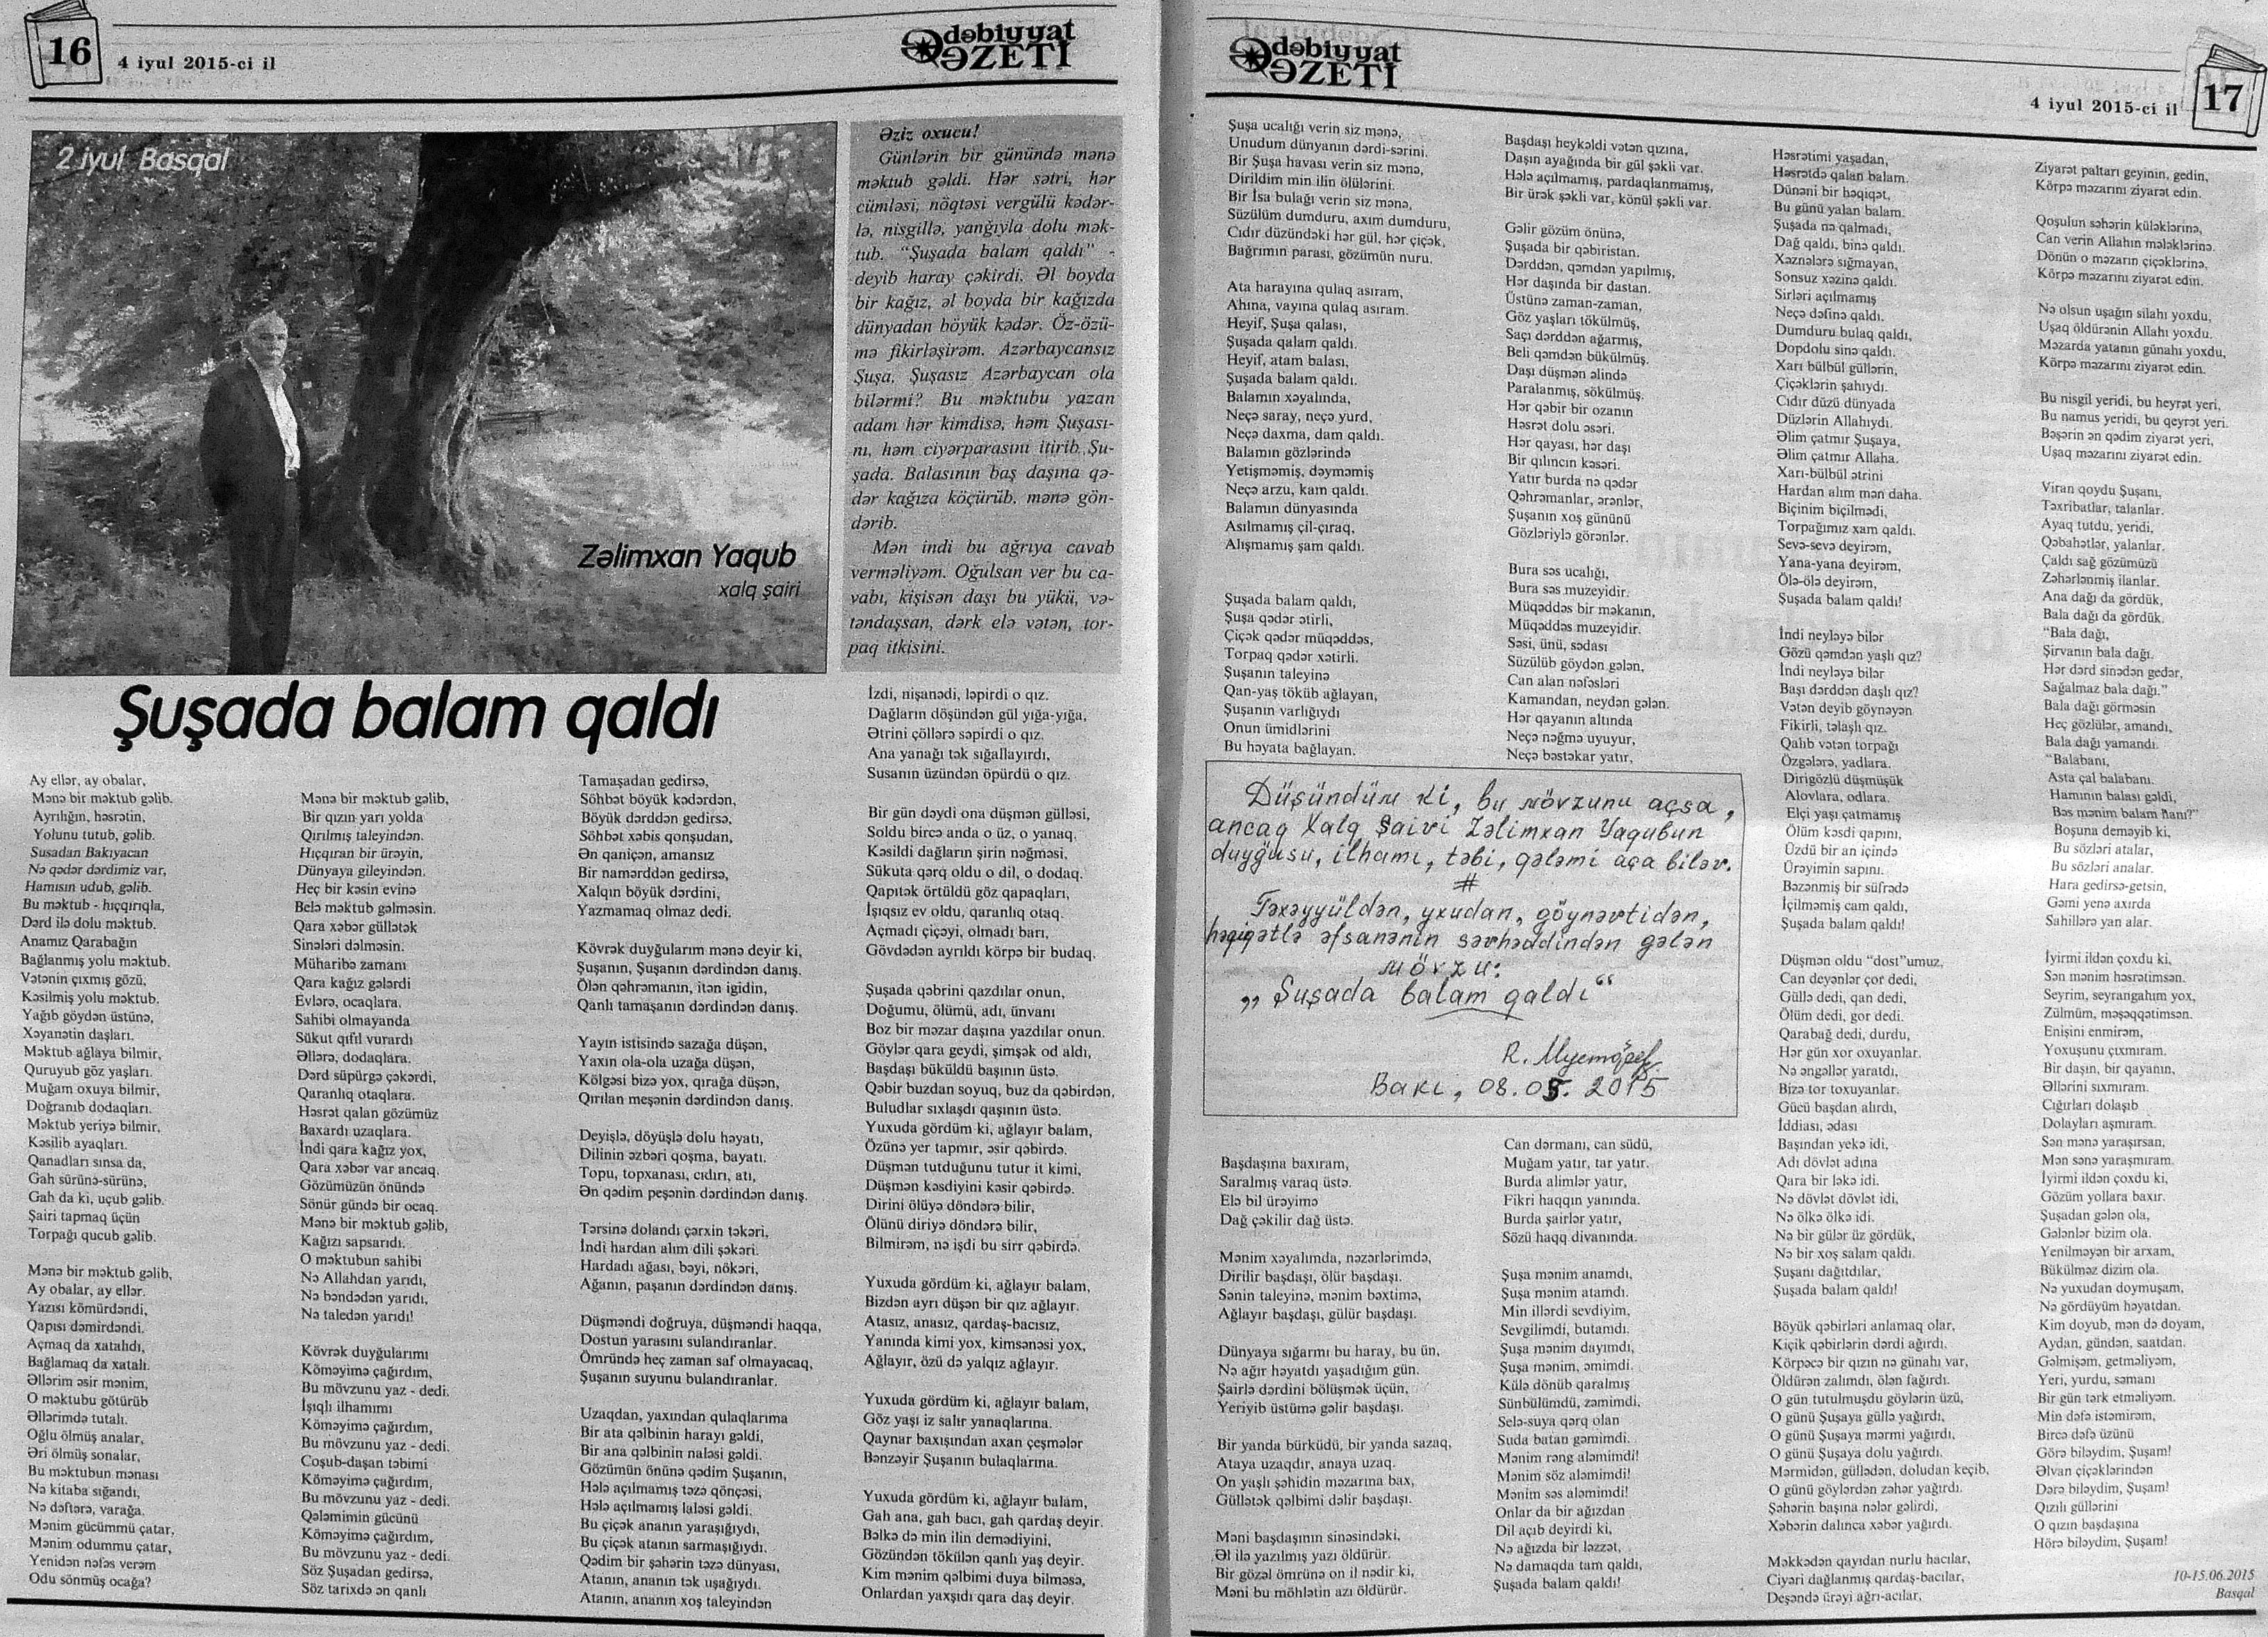 16
4 iyul 2015-ci il
Ədəbiyyat
QƏZETİ
2 iyul Basqal
Zəlimxan Yaqub
xalq şairi
Əziz oxucu!
Günlərin bir günündə mənə
məktub gəldi. Hər sətri, hər
cümləsi, nöqtəsi vergülü kədər-
lə, nisgillə, yanğıyla dolu mək-
tub. "Şuşada balam qaldı" -
deyib haray çəkirdi. Əl boyda
bir kağız, əl boyda bir kağızda
dünyadan böyük kədər. Öz-özü-
mə fikirləşirəm. Azərbaycansız
Şuşa, Şuşasız Azərbaycan ola
bilərmi? Bu məktubu yazan
adam hər kimdisə, həm Şuşası-
nı, həm ciyərparasını itirib Şu-
şada. Balasının baş daşına qə-
dər kağıza köçürüb, mənə gön-
dərib.
Mən indi bu ağrıya cavab
verməliyəm. Oğulsan ver bu ca-
vabı, kişisən daşı bu yükü, və-
təndaşsan, dərk elə vətən, tor-
paq itkisini.
Şuşada balam qaldı
Ay ellər, ay obalar,
Mənə bir məktub gəlib.
Ayrılığın, həsrətin,
Yolunu tutub, gəlib.
Susadan Bakıyacan
Nə qədər dərdimiz var,
Hamısın udub, gəlib.
Bu məktub - hıçqırıqla,
Dərd ilə dolu məktub.
Anamız Qarabağın
Bağlanmış yolu məktub.
Vətənin çıxmış gözü,
Kəsilmiş yolu məktub.
Yağıb göydən üstünə,
Xəyanətin daşları.
Məktub ağlaya bilmir,
Quruyub göz yaşları.
Muğam oxuya bilmir,
Doğranıb dodaqları.
Məktub yeriyə bilmir,
Kəsilib ayaqları.
Qanadları sınsa da,
Gah sürünə-sürünə,
Gah da ki, uçub gəlib.
Şairi tapmaq üçün
Torpağı qucub gəlib.
Mənə bir məktub gəlib,
Ay obalar, ay ellər.
Yazısı kömürdəndi,
Qapısı dəmirdəndi.
Açmaq da xatalıdı,
Bağlamaq da xatalı.
Əllərim əsir mənim,
O məktubu götürüb
Əllərimdə tutalı.
Oğlu ölmüş analar,
Əri ölmüş sonalar,
Bu məktubun mənası
Nə kitaba sığandı,
Nə dəftərə, varağa.
Mənim gücümmü çatar,
Mənim odummu çatar,
Yenidən nəfəs verəm
Odu sönmüş ocağa?
Mənə bir məktub gəlib,
Bir qızın yarı yolda
Qırılmış taleyindən.
Hıçqıran bir ürəyin,
Dünyaya gileyindən.
Heç bir kəsin evinə
Belə məktub gəlməsin.
Qara xəbər güllətək
Sinələri dəlməsin.
Müharibə zamanı
Qara kağız gələrdi
Evlərə, ocaqlara.
Sahibi olmayanda
Sükut qıfıl vurardı
Əllərə, dodaqlara.
Dərd süpürgə çəkərdi,
Qaranlıq otaqlara.
Həsrət qalan gözümüz
Baxardı uzaqlara.
İndi qara kağız yox,
Qara xəbər var ancaq.
Gözümüzün önündə
Sönür gündə bir ocaq.
Mənə bir məktub gəlib,
Kağızı sapsarıdı.
O məktubun sahibi
Nə Allahdan yarıdı,
Nə bəndədən yarıdı,
Nə taledən yarıdı!
Kövrək duyğularımı
Köməyimə çağırdım,
Bu mövzunu yaz - dedi.
İşıqlı ilhamımı
Köməyimə çağırdım,
Bu mövzunu yaz - dedi.
Coşub-daşan təbimi
Köməyimə çağırdım,
Bu mövzunu yaz - dedi.
Qələmimin gücünü
Köməyimə çağırdım,
Bu mövzunu yaz - dedi.
Söz Şuşadan gedirsə,
Söz tarixdə ən qanlı
Tamaşadan gedirsə,
Söhbət böyük kədərdən,
Böyük dərddən gedirsə,
Söhbət xəbis qonşudan,
Ən qaniçən, amansız
Bir namərddən gedirsə,
Xalqın böyük dərdini,
Yazmamaq olmaz dedi.
Kövrək duyğularım mənə deyir ki,
Şuşanın, Şuşanın dərdindən danış.
Ölən qəhrəmanın, itən igidin,
Qanlı tamaşanın dərdindən danış.
Yayın istisində sazağa düşən,
Yaxın ola-ola uzağa düşən,
Kölgəsi bizə yox, qırağa düşən,
Qırılan meşənin dərdindən danış.
Deyişlə, döyüşlə dolu həyatı,
Dilinin əzbəri qoşma, bayatı.
Topu, topxanası, cıdırı, atı,
Ən qədim peşənin dərdindən danış.
Tərsinə dolandı çərxin təkəri,
İndi hardan alım dili şəkəri.
Hardadı ağası, bəyi, nökəri,
Ağanın, paşanın dərdindən danış.
Düşməndi doğruya, düşməndi haqqa,
Dostun yarasını sulandıranlar.
Ömründə heç zaman saf olmayacaq,
Şuşanın suyunu bulandıranlar.
Uzaqdan, yaxından qulaqlarıma
Bir ata qəlbinin harayı gəldi,
Bir ana qəlbinin naləsi gəldi.
Gözümün önünə qədim Şuşanın,
Hələ açılmamış təzə qönçəsi,
Hələ açılmamış laləsi gəldi.
Bu çiçək ananın yaraşığıydı,
Bu çiçək atanın sarmaşığıydı.
Qədim bir şəhərin təzə dünyası,
Atanın, ananın tək uşağıydı.
Atanın, ananın xoş taleyindən
İzdi, nişanədi, ləpirdi o qız.
Dağların döşündən gül yığa-yığa,
Ətrini çöllərə səpirdi o qız.
Ana yanağı tək sığallayırdı,
Susanın üzündən öpürdü o qız.
Bir gün dəydi ona düşmən gülləsi,
Soldu bircə anda o üz, o yanaq.
Kəsildi dağların şirin nəğməsi,
Sükuta qərq oldu o dil, o dodaq.
Qapıtək örtüldü göz qapaqları,
İşıqsız ev oldu, qaranlıq otaq.
Açmadı çiçəyi, olmadı barı,
Gövdədən ayrıldı körpə bir budaq.
Şuşada qəbrini qazdılar onun,
Doğumu, ölümü, adı, ünvanı
Boz bir məzar daşına yazdılar onun.
Göylər qara geydi, şimşək od aldı,
Başdaşı büküldü başının üstə.
Qəbir buzdan soyuq, buz da qəbirdən,
Buludlar sıxlaşdı qaşının üstə.
Yuxuda gördüm ki, ağlayır balam,
Özünə yer tapmır, əsir qəbirdə.
Düşmən tutduğunu tutur it kimi,
Düşmən kəsdiyini kəsir qəbirdə.
Dirini ölüyə döndərə bilir,
Ölünü diriyə döndərə bilir,
Bilmirəm, nə işdi bu sirr qəbirdə.
Yuxuda gördüm ki, ağlayır balam,
Bizdən ayrı düşən bir qız ağlayır.
Atasız, anasız, qardaş-bacısız,
Yanında kimi yox, kimsənəsi yox,
Ağlayır, özü də yalqız ağlayır.
Yuxuda gördüm ki, ağlayır balam,
Göz yaşı iz salır yanaqlarına.
Qaynar baxışından axan çeşmələr
Bənzəyir Şuşanın bulaqlarına.
Yuxuda gördüm ki, ağlayır balam,
Gah ana, gah bacı, gah qardaş deyir.
Bəlkə də min ilin demədiyini,
Gözündən tökülən qanlı yaş deyir.
Kim mənim qəlbimi duya bilməsə,
Onlardan yaxşıdı qara daş deyir.
Ədəbiyyat
QƏZETİ
4 iyul 2015-ci il
17
Şuşa ucalığı verin siz mənə,
Unudum dünyanın dərdi-sərini.
Bir Şuşa havası verin siz mənə,
Dirildim min ilin ölülərini.
Bir İsa bulağı verin siz mənə,
Süzülüm dumduru, axım dumduru,
Cıdır düzündəki hər gül, hər çiçək,
Bağrımın parası, gözümün nuru.
Ata harayına qulaq asıram,
Ahına, vayına qulaq asıram.
Heyif, Şuşa qalası,
Şuşada qalam qaldı.
Heyif, atam balası,
Şuşada balam qaldı.
Balamın xəyalında,
Neçə saray, neçə yurd,
Neçə daxma, dam qaldı.
Balamın gözlərində
Yetişməmiş, dəyməmiş
Neçə arzu, kam qaldı.
Balamın dünyasında
Asılmamış çil-çıraq,
Alışmamış şam qaldı.
Şuşada balam qaldı,
Şuşa qədər ətirli,
Çiçək qədər müqəddəs,
Torpaq qədər xətirli.
Şuşanın taleyinə
Qan-yaş töküb ağlayan,
Şuşanın varlığıydı
Onun ümidlərini
Bu həyata bağlayan.
Düşündüm ki, bu mövzunu açsa,
ancaq Xalq Şairi Zəlimxan Yaqubun
duyğusu, ilhamı, təbi, qələmi aça bilər.
#
Təxəyyüldən, yxudan, göynərtidən,
həqiqətlə əfsanənin sərhəddindən gələn
mövzu:
„Şuşada balam qaldı“
Bakı, 08.05.2015
Başdaşına baxıram,
Saralmış varaq üstə.
Elə bil ürəyimə
Dağ çəkilir dağ üstə.
Mənim xəyalımda, nəzərlərimdə,
Dirilir başdaşı, ölür başdaşı.
Sənin taleyinə, mənim bəxtimə,
Ağlayır başdaşı, gülür başdaşı.
Dünyaya sığarmı bu haray, bu ün,
Nə ağır həyatdı yaşadığım gün.
Şairlə dərdini bölüşmək üçün,
Yeriyib üstümə gəlir başdaşı.
Bir yanda bürküdü, bir yanda sazaq,
Ataya uzaqdır, anaya uzaq.
On yaşlı şəhidin məzarına bax,
Güllətək qəlbimi dəlir başdaşı.
Məni başdaşının sinəsindəki,
Əl ilə yazılmış yazı öldürür.
Bir gözəl ömrünə on il nədir ki,
Məni bu möhlətin azı öldürür.
Başdaşı heykəldi vətən qızına,
Daşın ayağında bir gül şəkli var.
Hələ açılmamış, pardaqlanmamış,
Bir ürək şəkli var, könül şəkli var.
Gəlir gözüm önünə,
Şuşada bir qəbiristan.
Dərddən, qəmdən yapılmış,
Hər daşında bir dastan.
Üstünə zaman-zaman,
Göz yaşları tökülmüş,
Saçı dərddən ağarmış,
Beli qəmdən bükülmüş.
Daşı düşmən əlində
Paralanmış, sökülmüş.
Hər qəbir bir ozanın
Həsrət dolu əsəri.
Hər qayası, hər daşı
Bir qılıncın kəsəri.
Yatır burda nə qədər
Qəhrəmanlar, ərənlər,
Şuşanın xoş gününü
Gözləriylə görənlər.
Bura səs ucalığı,
Bura səs muzeyidir.
Müqəddəs bir məkanın,
Müqəddəs muzeyidir.
Səsi, ünü, sədası
Süzülüb göydən gələn,
Can alan nəfəsləri
Kamandan, neydən gələn.
Hər qayanın altında
Neçə nəğmə uyuyur,
Neçə bəstəkar yatır,
Can dərmanı, can südü,
Muğam yatır, tar yatır.
Burda alimlər yatır,
Fikri haqqın yanında.
Burda şairlər yatır,
Sözü haqq divanında.
Şuşa mənim anamdı,
Şuşa mənim atamdı.
Min illərdi sevdiyim,
Sevgilimdi, butamdı.
Şuşa mənim dayımdı,
Şuşa mənim, əmimdi.
Külə dönüb qaralmış
Sünbülümdü, zəmimdi.
Selə-suya qərq olan
Suda batan gəmimdi.
Mənim rəng aləmimdi!
Mənim söz aləmimdi!
Mənim səs aləmimdi!
Onlar da bir ağızdan
Dil açıb deyirdi ki,
Nə ağızda bir ləzzət,
Nə damaqda tam qaldı,
Şuşada balam qaldı!
Həsrətimi yaşadan,
Həsrətdə qalan balam.
Dünəni bir həqiqət,
Bu günü yalan balam.
Şuşada nə qalmadı,
Dağ qaldı, binə qaldı.
Xəznələrə sığmayan,
Sonsuz xəzinə qaldı.
Sirləri açılmamış
Neçə dəfinə qaldı.
Dumduru bulaq qaldı,
Dopdolu sinə qaldı.
Xarı bülbül güllərin,
Çiçəklərin şahıydı.
Cıdır düzü dünyada
Düzlərin Allahıydı.
Əlim çatmır Şuşaya,
Əlim çatmır Allaha.
Xarı-bülbül ətrini
Hardan alım mən daha.
Biçinim biçilmədi,
Torpağımız xam qaldı.
Sevə-sevə deyirəm,
Yana-yana deyirəm,
Ölə-ölə deyirəm,
Şuşada balam qaldı!
İndi neyləyə bilər
Gözü qəmdən yaşlı qız?
İndi neyləyə bilər
Başı dərddən daşlı qız?
Vətən deyib göynəyən
Fikirli, təlaşlı qız.
Qalıb vətən torpağı
Özgələrə, yadlara.
Dirigözlü düşmüşük
Alovlara, odlara.
Elçi yaşı çatmamış
Ölüm kəsdi qapını,
Üzdü bir an içində
Ürəyimin sapını.
Bəzənmiş bir süfrədə
İçilməmiş cam qaldı,
Şuşada balam qaldı!
Düşmən oldu "dost"umuz,
Can deyənlər çor dedi,
Güllə dedi, qan dedi,
Ölüm dedi, gor dedi.
Qarabağ dedi, durdu,
Hər gün xor oxuyanlar.
Nə əngəllər yaratdı,
Bizə tor toxuyanlar.
Gücü başdan alırdı,
İddiası, ədası
Başından yekə idi,
Adı dövlət adına
Qara bir ləkə idi.
Nə dövlət dövlət idi,
Nə ölkə ölkə idi.
Nə bir gülər üz gördük,
Nə bir xoş salam qaldı.
Şuşanı dağıtdılar,
Şuşada balam qaldı!
Böyük qəbirləri anlamaq olar,
Kiçik qəbirlərin dərdi ağırdı.
Körpəcə bir qızın nə günahı var,
Öldürən zalımdı, ölən fağırdı.
O gün tutulmuşdu göylərin üzü,
O günü Şuşaya güllə yağırdı,
O günü Şuşaya mərmi yağırdı,
O günü Şuşaya dolu yağırdı.
Mərmidən, güllədən, doludan keçib,
O günü göylərdən zəhər yağırdı.
Şəhərin başına nələr gəlirdi,
Xəbərin dalınca xəbər yağırdı.
Məkkədən qayıdan nurlu hacılar,
Ciyəri dağlanmış qardaş-bacılar,
Deşəndə ürəyi ağrı-acılar,
Ziyarət paltarı geyinin, gedin,
Körpə məzarını ziyarət edin.
Qoşulun səhərin küləklərinə,
Can verin Allahın mələklərinə.
Dönün o məzarın çiçəklərinə,
Körpə məzarını ziyarət edin.
Nə olsun uşağın silahı yoxdu,
Uşaq öldürənin Allahı yoxdu.
Məzarda yatanın günahı yoxdu,
Körpə məzarını ziyarət edin.
Bu nisgil yeridi, bu heyrət yeri,
Bu namus yeridi, bu qeyrət yeri.
Bəşərin ən qədim ziyarət yeri,
Uşaq məzarını ziyarət edin.
Viran qoydu Şuşanı,
Təxribatlar, talanlar.
Ayaq tutdu, yeridi,
Qəbahətlər, yalanlar.
Çaldı sağ gözümüzü
Zəhərlənmiş ilanlar.
Ana dağı da gördük,
Bala dağı da gördük.
"Bala dağı,
Şirvanın bala dağı.
Hər dərd sinədən gedər,
Sağalmaz bala dağı."
Bala dağı görməsin
Heç gözlülər, amandı,
Bala dağı yamandı.
"Balabanı,
Asta çal balabanı.
Hamının balası gəldi,
Bəs mənim balam hanı?"
Boşuna deməyib ki,
Bu sözləri atalar,
Bu sözləri analar.
Hara gedirsə-getsin,
Gəmi yenə axırda
Sahillərə yan alar.
İyirmi ildən çoxdu ki,
Sən mənim həsrətimsən.
Seyrim, seyrangahım yox,
Zülmüm, məşəqqətimsən.
Enişini enmirəm,
Yoxuşunu çıxmıram.
Bir daşın, bir qayanın,
Əllərini sıxmıram.
Cığırları dolaşıb
Dolayları aşmıram.
Sən mənə yaraşırsan,
Mən sənə yaraşmıram.
İyirmi ildən çoxdu ki,
Gözüm yollara baxır.
Şuşadan gələn ola,
Gələnlər bizim ola.
Yenilməyən bir arxam,
Bükülməz dizim ola.
Nə yuxudan doymuşam,
Nə gördüyüm həyatdan.
Kim doyub, mən də doyam,
Aydan, gündən, saatdan.
Gəlmişəm, getməliyəm,
Yeri, yurdu, səmanı
Bir gün tərk etməliyəm.
Min dəfə istəmirəm,
Bircə dəfə üzünü
Görə biləydim, Şuşam!
Əlvan çiçəklərindən
Dərə biləydim, Şuşam!
Qızılı güllərini
O qızın başdaşına
Hörə biləydim, Şuşam!
10-15.06.2015
Basqal